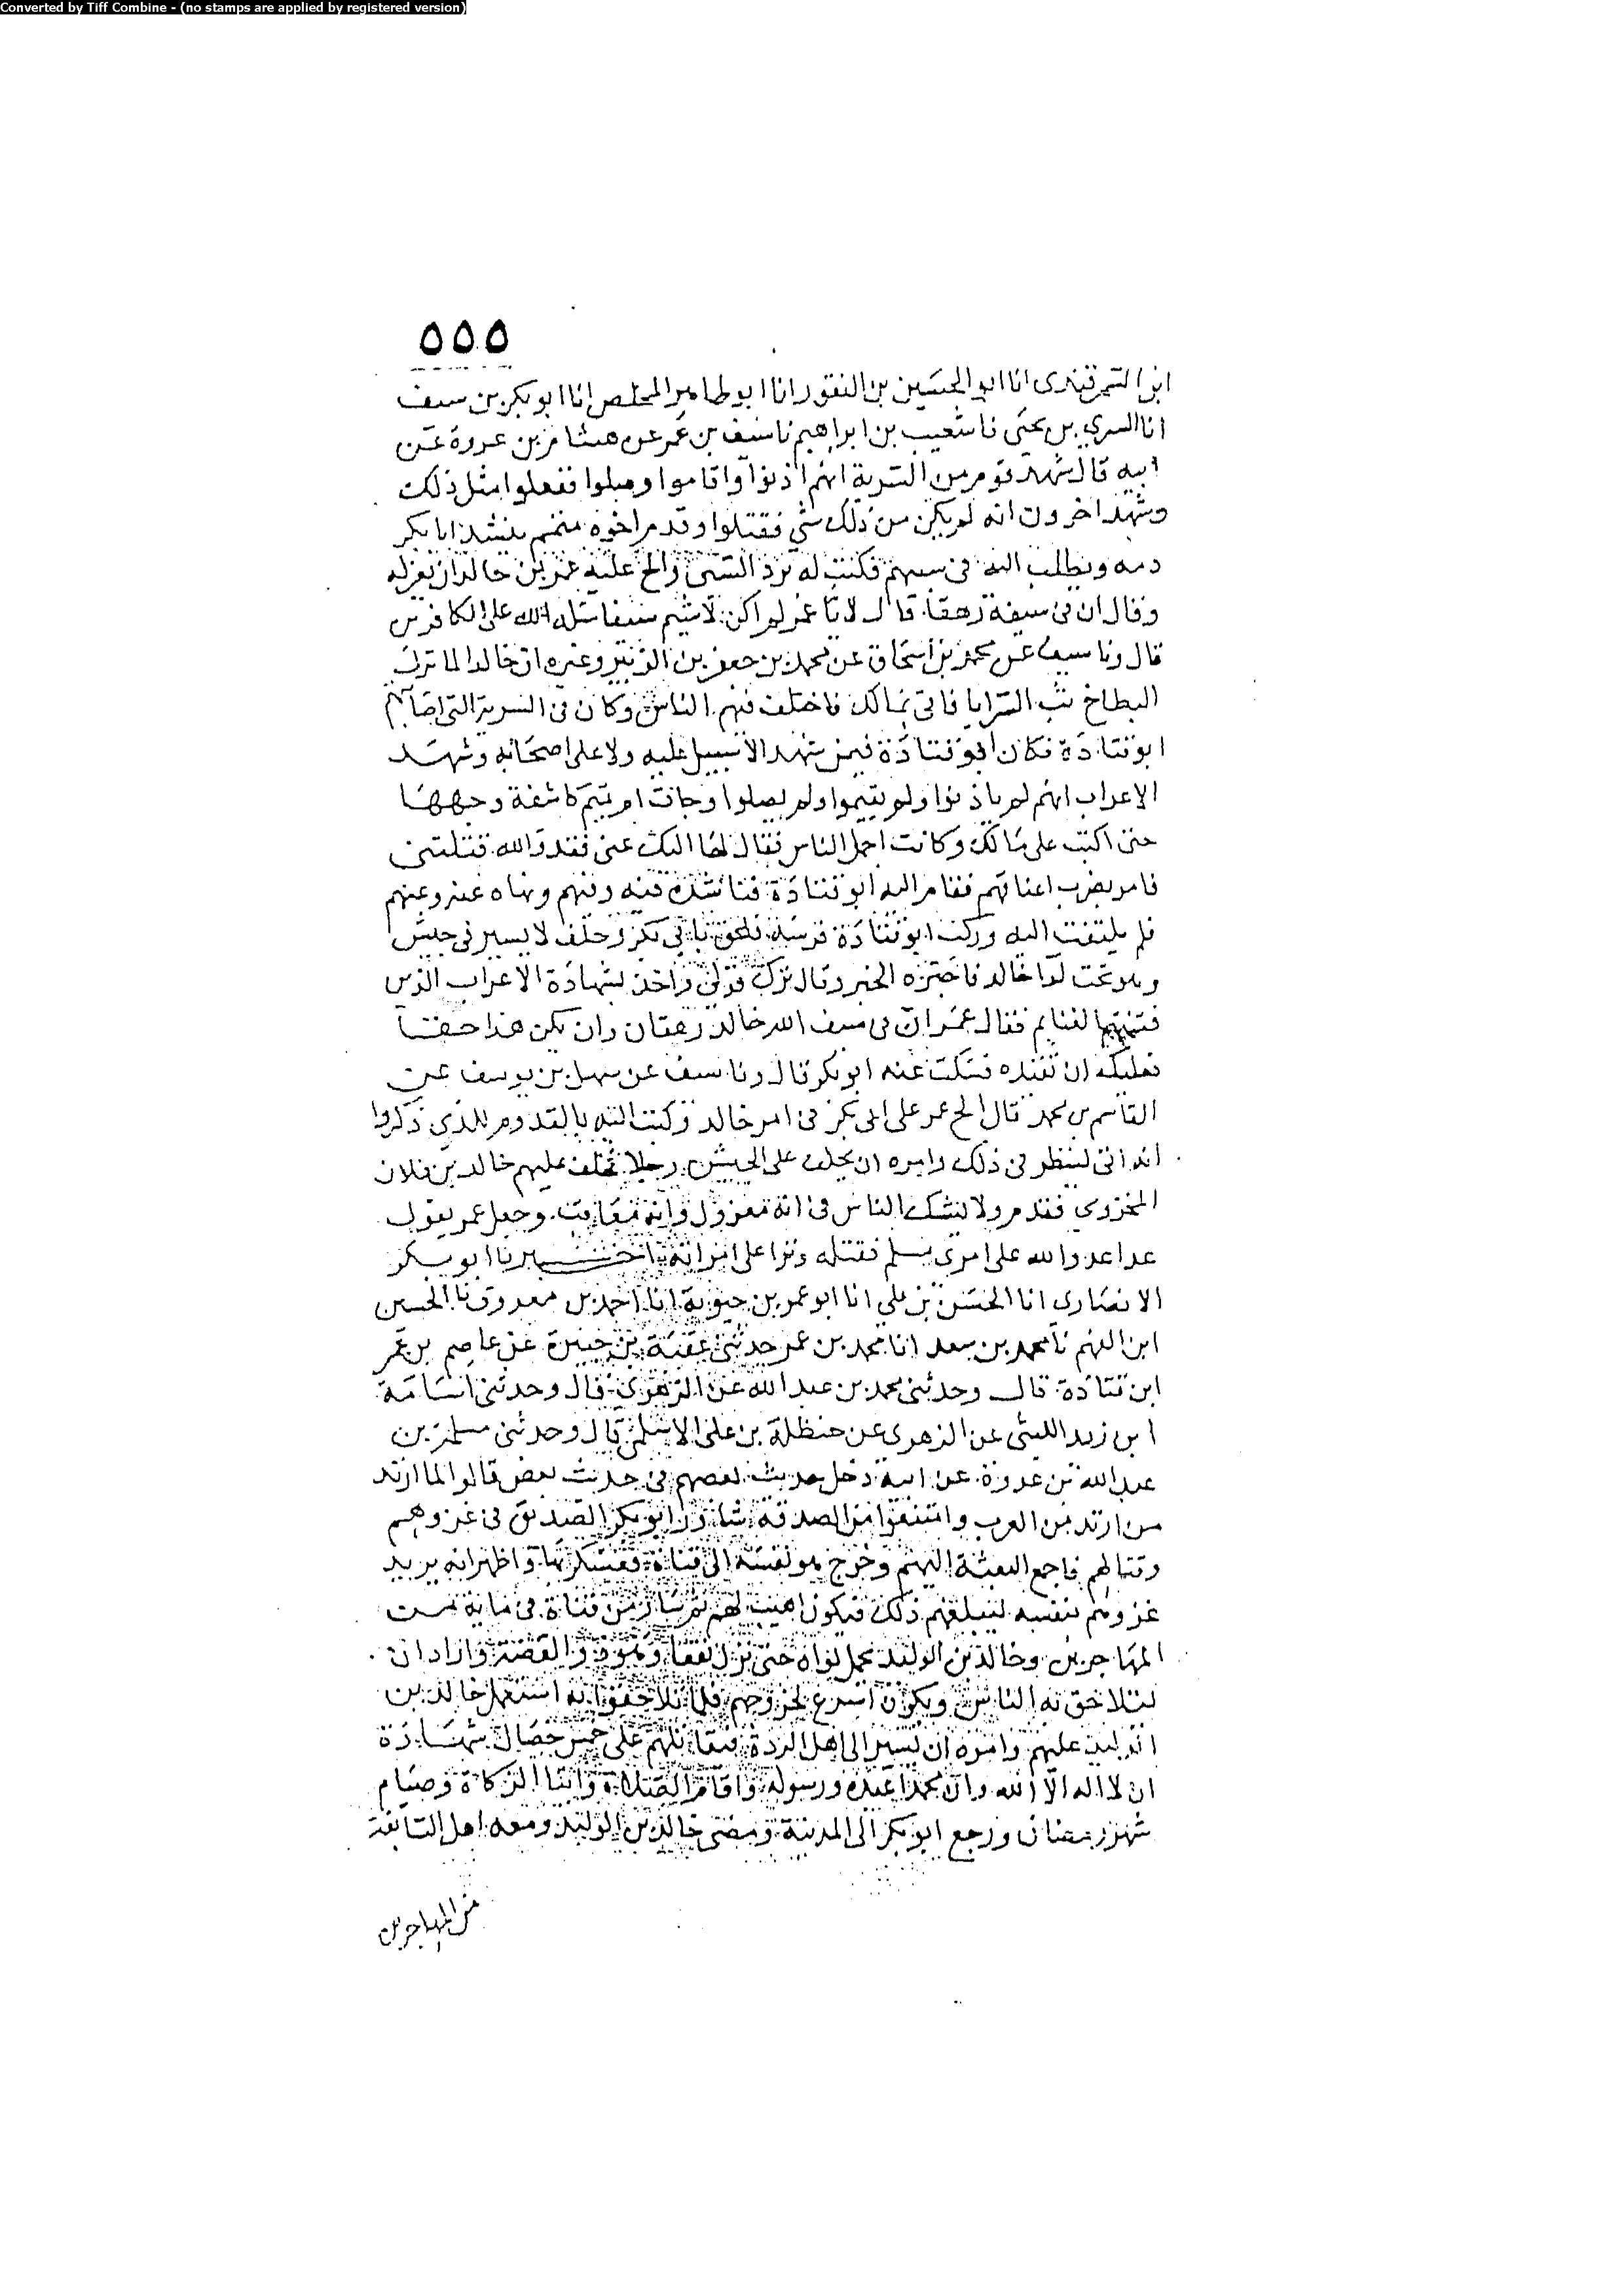 Converted by Tiff Combine - (no stamps are applied by registered version)
٥٥٥
ابن السمرقندى انا ابو الحسين بن النقور انا ابو طاهر المخلص انا ابو بكر بن سيف
انا السري بن يحيى نا شعيب بن ابراهيم نا سيف بن عمر عن هشام بن عروة عن
ابيه قال شهد قوم من السرية انهم اذنوا واقاموا وصلوا ففعلوا مثل ذلك
وشهد اخرون انه لم يكن من ذلك شي فقتلوا وقدم اخوه متمم ينشد ابا بكر
دمه ويطلب اليه فى سبيهم فكتب له برد السبى والح عليه عمر بن خالد ان يعزله
وقال ان فى سيفه رهقا قال لا يا عمر لم اكن لاشيم سيفا سله الله على الكافرين
قال ونا سيف عن محمد بن اسحاق عن محمد بن جعفر بن الزبير وغيره ان خالدا لما ترك
البطاح بث السرايا فاتى بمالك فاختلف فيهم الناس وكان فى السرية التى اصابتهم
ابو قتادة فكان ابو قتادة فيمن شهد الا سبيل عليه ولا على اصحابه وشهد
الاعراب انهم لم ياذنوا ولم يقيموا ولم يصلوا وجات ام تميم كاشفة وجهها
حتى اكبت على مالك وكانت اجمل الناس فقال لها اليك عنى فقد والله قتلتنى
فامر بضرب اعناقهم فقام اليه ابو قتادة فناشده فيه وفيهم ونهاه عنه وعنهم
فلم يلتفت اليه وركب ابو قتادة فرسه فلحق بابى بكر وحلف لا يسير فى جيش
وهو تحت لوا خالد فاخبره الخبر وقال ترك قولى واخذ بشهادة الاعراب الذين
فتنتهم الغنايم فقال عمر ان فى سيف الله خالد رهقان وان يكن هذا حقا
فعليك ان تقيده فسكت عنه ابو بكر قال ونا سيف عن سهل بن يوسف عن
القاسم بن محمد قال الح عمر على ابى بكر فى امر خالد وكتب اليه بالقدوم للذى ذكروا
انه اتى لينظر فى ذلك وامره ان يخلف على الجيش رجلا فخلف عليهم خالد بن فلان
المخزومى فقدم ولا يشك الناس فى انه معزول وانه معاقب وجعل عمر يقول
عدا عدو الله على امرئ مسلم فقتله ونزا على امراته اخبرنا ابو بكر
الانصارى انا الحسن بن على انا ابو عمر بن حيوية انا احمد بن معروف نا الحسين
ابن الفهم نا محمد بن سعد انا محمد بن عمر حدثنى عتبة بن جبيرة عن عاصم بن عمر
ابن قتادة قال وحدثنى محمد بن عبد الله عن الزهرى قال وحدثنى اسامة
ابن زيد الليثى عن الزهرى عن حنظلة بن على الاسلمى قال وحدثنى مسلم بن
عبد الله بن عروة عن ابيه دخل حديث بعضهم فى حديث بعض قالوا لما ارتد
من ارتد من العرب وامتنعوا من الصدقة شاور ابو بكر الصديق فى غزوهم
وقتالهم فاجمع البعثة اليهم وخرج هو بنفسه الى قناة فعسكر بها واظهر انه يريد
غزوهم بنفسه ليبلغهم ذلك فيكون اهيب لهم ثم سار من قناة فى ماية من
المهاجرين وخالد بن الوليد يحمل لواه حتى نزل بقعا وهو ذو القصة واراد ان
يتلاحق به الناس ويكون اسرع لخروجهم فلما تلاحقوا به استعمل خالد بن
الوليد عليهم وامره ان يسير الى اهل الردة فيقاتلهم على خمس خصال شهادة
ان لا اله الا الله وان محمدا عبده ورسوله واقام الصلاة وايتا الزكاة وصيام
شهر رمضان ورجع ابو بكر الى المدينة ومضى خالد بن الوليد ومعه اهل السابقة
من المهاجرين